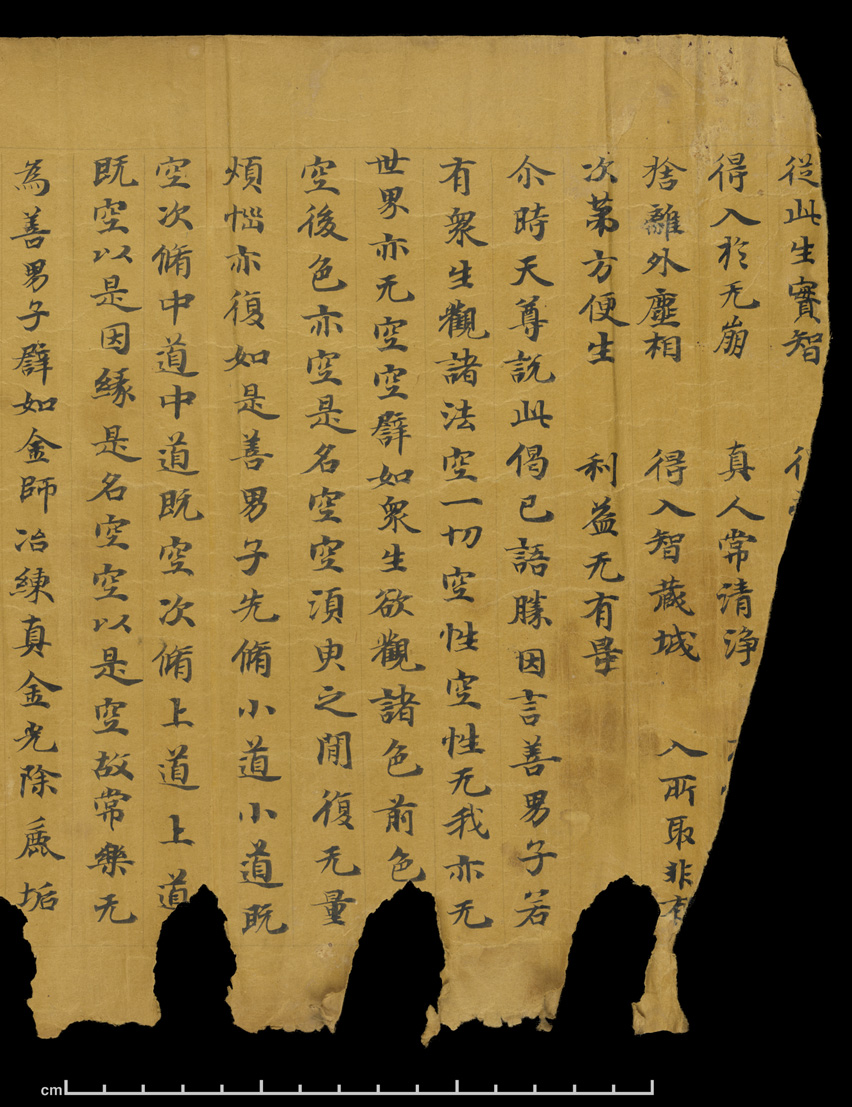 從此生實智
得入於无崩　真人常清淨
捨離外塵相　得入智蔵城　入所取非有
次苐方便生　利益无有量
尒時天尊説此偈已語滕因言善男子若
有衆生觀諸法空一切空性空性无我亦无
世界亦无空空譬如衆生欲觀諸色前色
空後色亦空是名空空湏臾之閒復无量
煩惱亦復如是善男子先脩小道小道既
空次脩中道中道既空次脩上道上道
既空以是因縁是名空空以是空故常樂无
為善男子譬如金師冶練真金先除麁垢